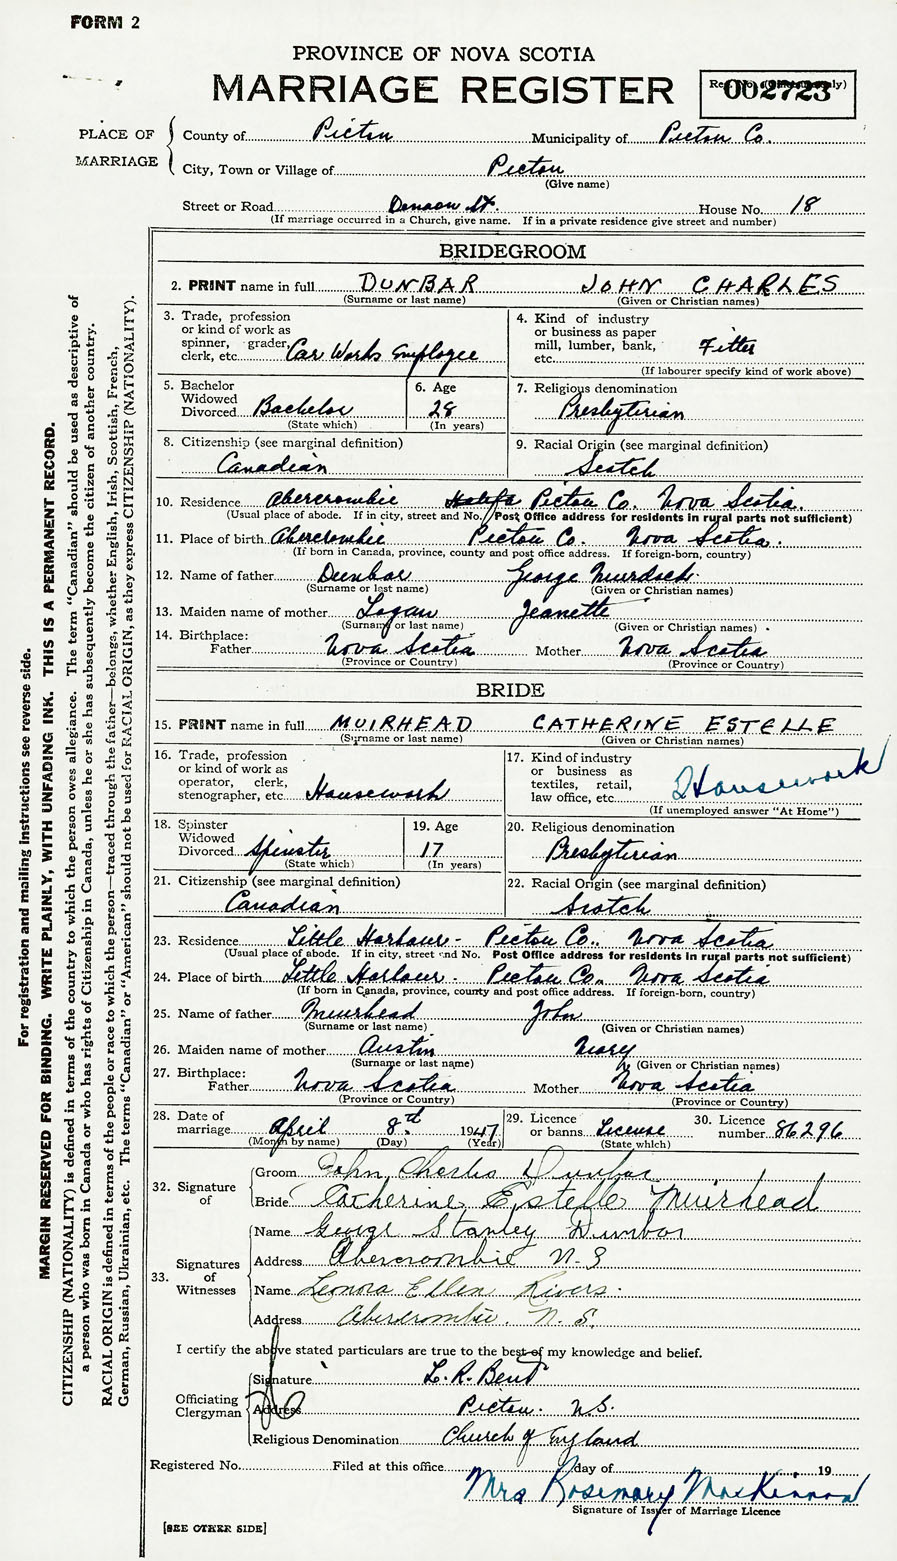 FORM 2
PROVINCE OF NOVA SCOTIA
MARRIAGE REGISTER
002723
PLACE OF MARRIAGE
County of Pictou Municipality of Pictou Co.
City, Town or Village of Pictou
(Give name)
Street or Road St. House No. 18
(If marriage occurred in a Church, give name. If in a private residence give street and number)
BRIDEGROOM
2. PRINT name in full DUNBAR JOHN CHARLES
(Surname or last name) (Given or Christian names)
3. Trade, profession
or kind of work as
spinner, grader,
clerk, etc. Car Works Employee
4. Kind of industry
or business as paper
mill, lumber, bank,
etc. Fitter
(If labourer specify kind of work above)
5. Bachelor
Widowed
Divorced Bachelor
(State which)
6. Age
28
(In years)
7. Religious denomination
Presbyterian
8. Citizenship (see marginal definition)
Canadian
9. Racial Origin (see marginal definition)
Scotch
10. Residence Abercrombie Halifa Pictou Co. Nova Scotia.
(Usual place of abode. If in city, street and No. Post Office address for residents in rural parts not sufficient)
11. Place of birth Abercrombie Pictou Co. Nova Scotia.
(If born in Canada, province, county and post office address. If foreign-born, country)
12. Name of father Dunbar George Murdoch
(Surname or last name) (Given or Christian names)
13. Maiden name of mother Logan Jeanette
(Surname or last name) (Given or Christian names)
14. Birthplace:
Father Nova Scotia Mother Nova Scotia
(Province or Country) (Province or Country)
BRIDE
15. PRINT name in full MUIRHEAD CATHERINE ESTELLE
(Surname or last name) (Given or Christian names)
16. Trade, profession
or kind of work as
operator, clerk,
stenographer, etc. Housework
17. Kind of industry
or business as
textiles, retail,
law office, etc. Housework
(If unemployed answer "At Home")
18. Spinster
Widowed
Divorced Spinster
(State which)
19. Age
17
(In years)
20. Religious denomination
Presbyterian
21. Citizenship (see marginal definition)
Canadian
22. Racial Origin (see marginal definition)
Scotch
23. Residence Little Harbour - Pictou Co., Nova Scotia
(Usual place of abode. If in city, street and No. Post Office address for residents in rural parts not sufficient)
24. Place of birth Little Harbour - Pictou Co. Nova Scotia
(If born in Canada, province, county and post office address. If foreign-born, country)
25. Name of father Muirhead John
(Surname or last name) (Given or Christian names)
26. Maiden name of mother Austin Mary
(Surname or last name) (Given or Christian names)
27. Birthplace:
Father Nova Scotia Mother Nova Scotia
(Province or Country) (Province or Country)
28. Date of
marriage April 8th 1947
(Month by name) (Day) (Year)
29. Licence
or banns License
(State which)
30. Licence
number 86296
32. Signature
of
Groom John Charles Dunbar
Bride Catherine Estelle Muirhead
33. Signatures
of
Witnesses
Name George Stanley Dunbar
Address Abercrombie N.S
Name Lenora Ellen Rivers.
Address Abercrombie. N. S.
I certify the above stated particulars are true to the best of my knowledge and belief.
Officiating
Clergyman
Signature L. R. Bent
Address Pictou. N.S.
Religious Denomination Church of England
Registered No. Filed at this office day of 19
Mrs Rosemary MacKinnon
Signature of Issuer of Marriage Licence
[SEE OTHER SIDE]
For registration and mailing instructions see reverse side.
MARGIN RESERVED FOR BINDING. WRITE PLAINLY, WITH UNFADING INK. THIS IS A PERMANENT RECORD.
CITIZENSHIP (NATIONALITY) is defined in terms of the country to which the person owes allegiance. The term "Canadian" should be used as descriptive of
a person who was born in Canada or who has rights of Citizenship in Canada, unless he or she has subsequently become the citizen of another country.
RACIAL ORIGIN is defined in terms of the people or race to which the person—traced through the father—belongs, whether English, Irish, Scottish, French,
German, Russian, Ukrainian, etc. The terms "Canadian" or "American" should not be used for RACIAL ORIGIN, as they express CITIZENSHIP (NATIONALITY).